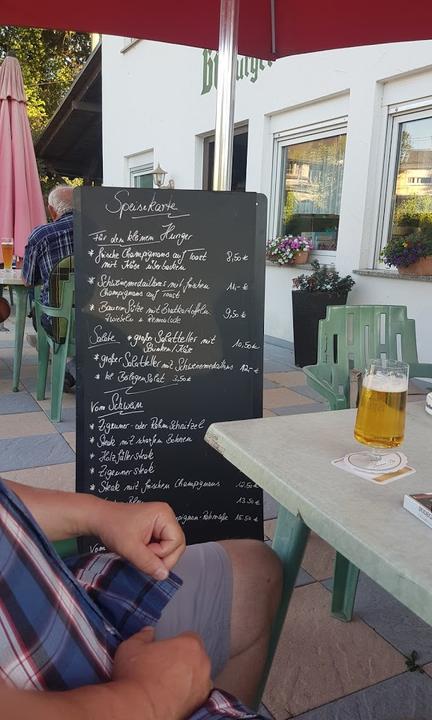 Speisekarte
Für den kleinen Hunger
* frische Champignons auf Toast 8,50 €
mit Käse überbacken
* Schweinemedaillons mit frischen 11,- €
Champignons auf Toast
* Bauern Sülze mit Bratkartoffeln 9,50 €
Zwiebeln + Remoulade
Salate * großer Salatteller mit 10,50 €
Schinken/Käse
* großer Salatteller mit Schweinemedaillons 12,- €
* kl. Beilagen Salat 3,50 €
Vom Schwein
* Zigeuner- oder Rahmschnitzel
* Steak mit scharfen Bohnen
* Holzfällersteak
* Zigeunersteak
* Steak mit frischen Champignons 12,50 €
13,50 €
15,50 €
Vom